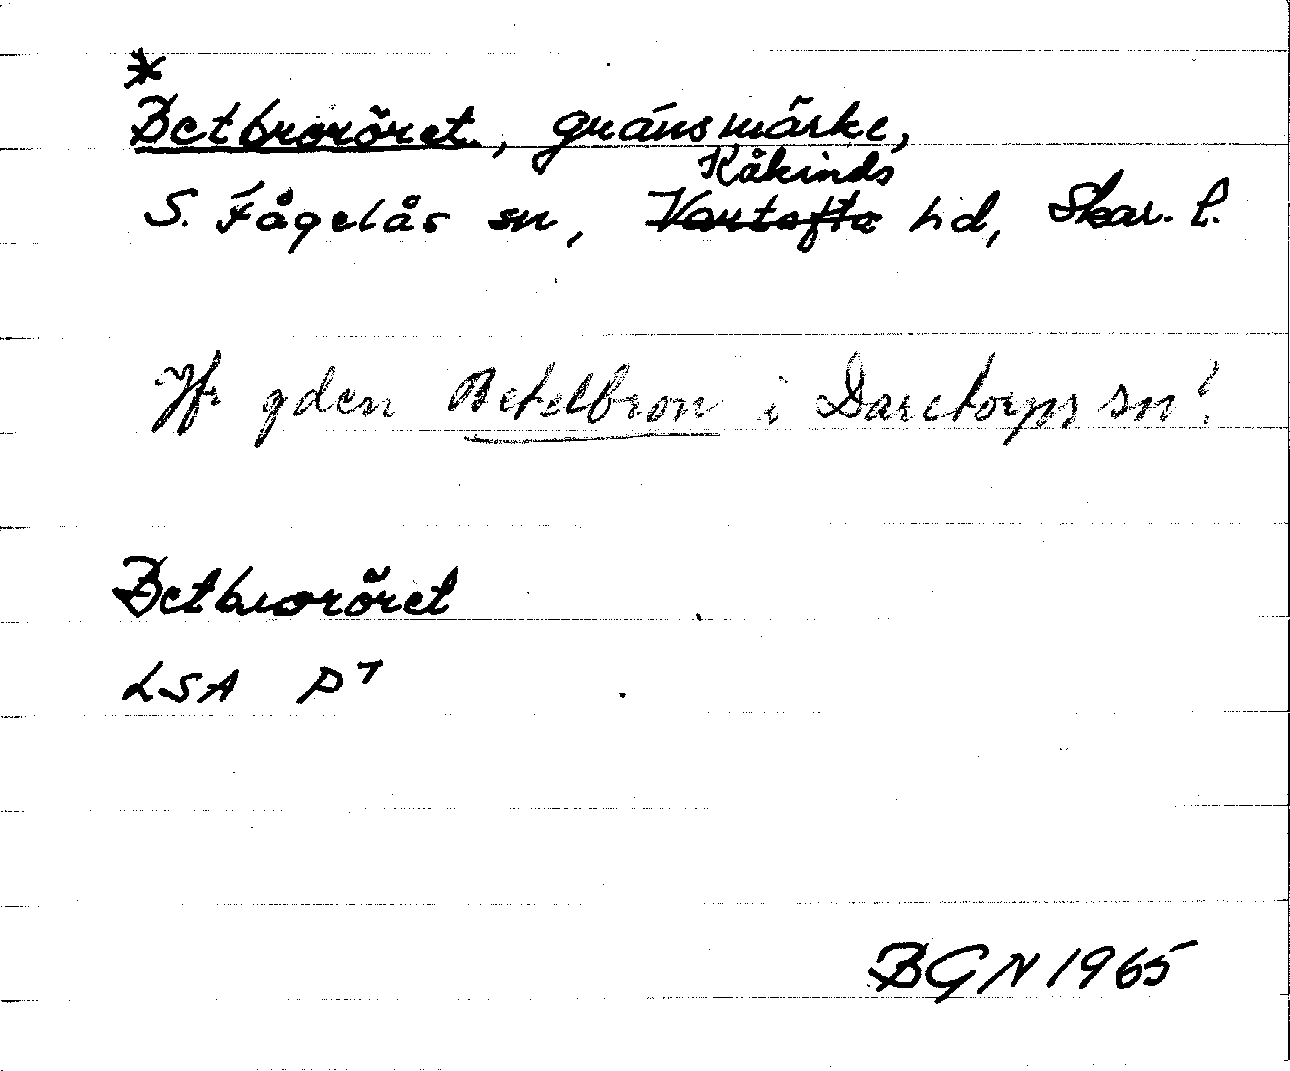 *
Betbroröret, gränsmärke,
Kåkinds
S. Fågelås sn, Vartofta hd, Skar. l.
Jfr gden Betelbron i Daretorps sn!
Betbroröret
LSA P 7
BGN 1965